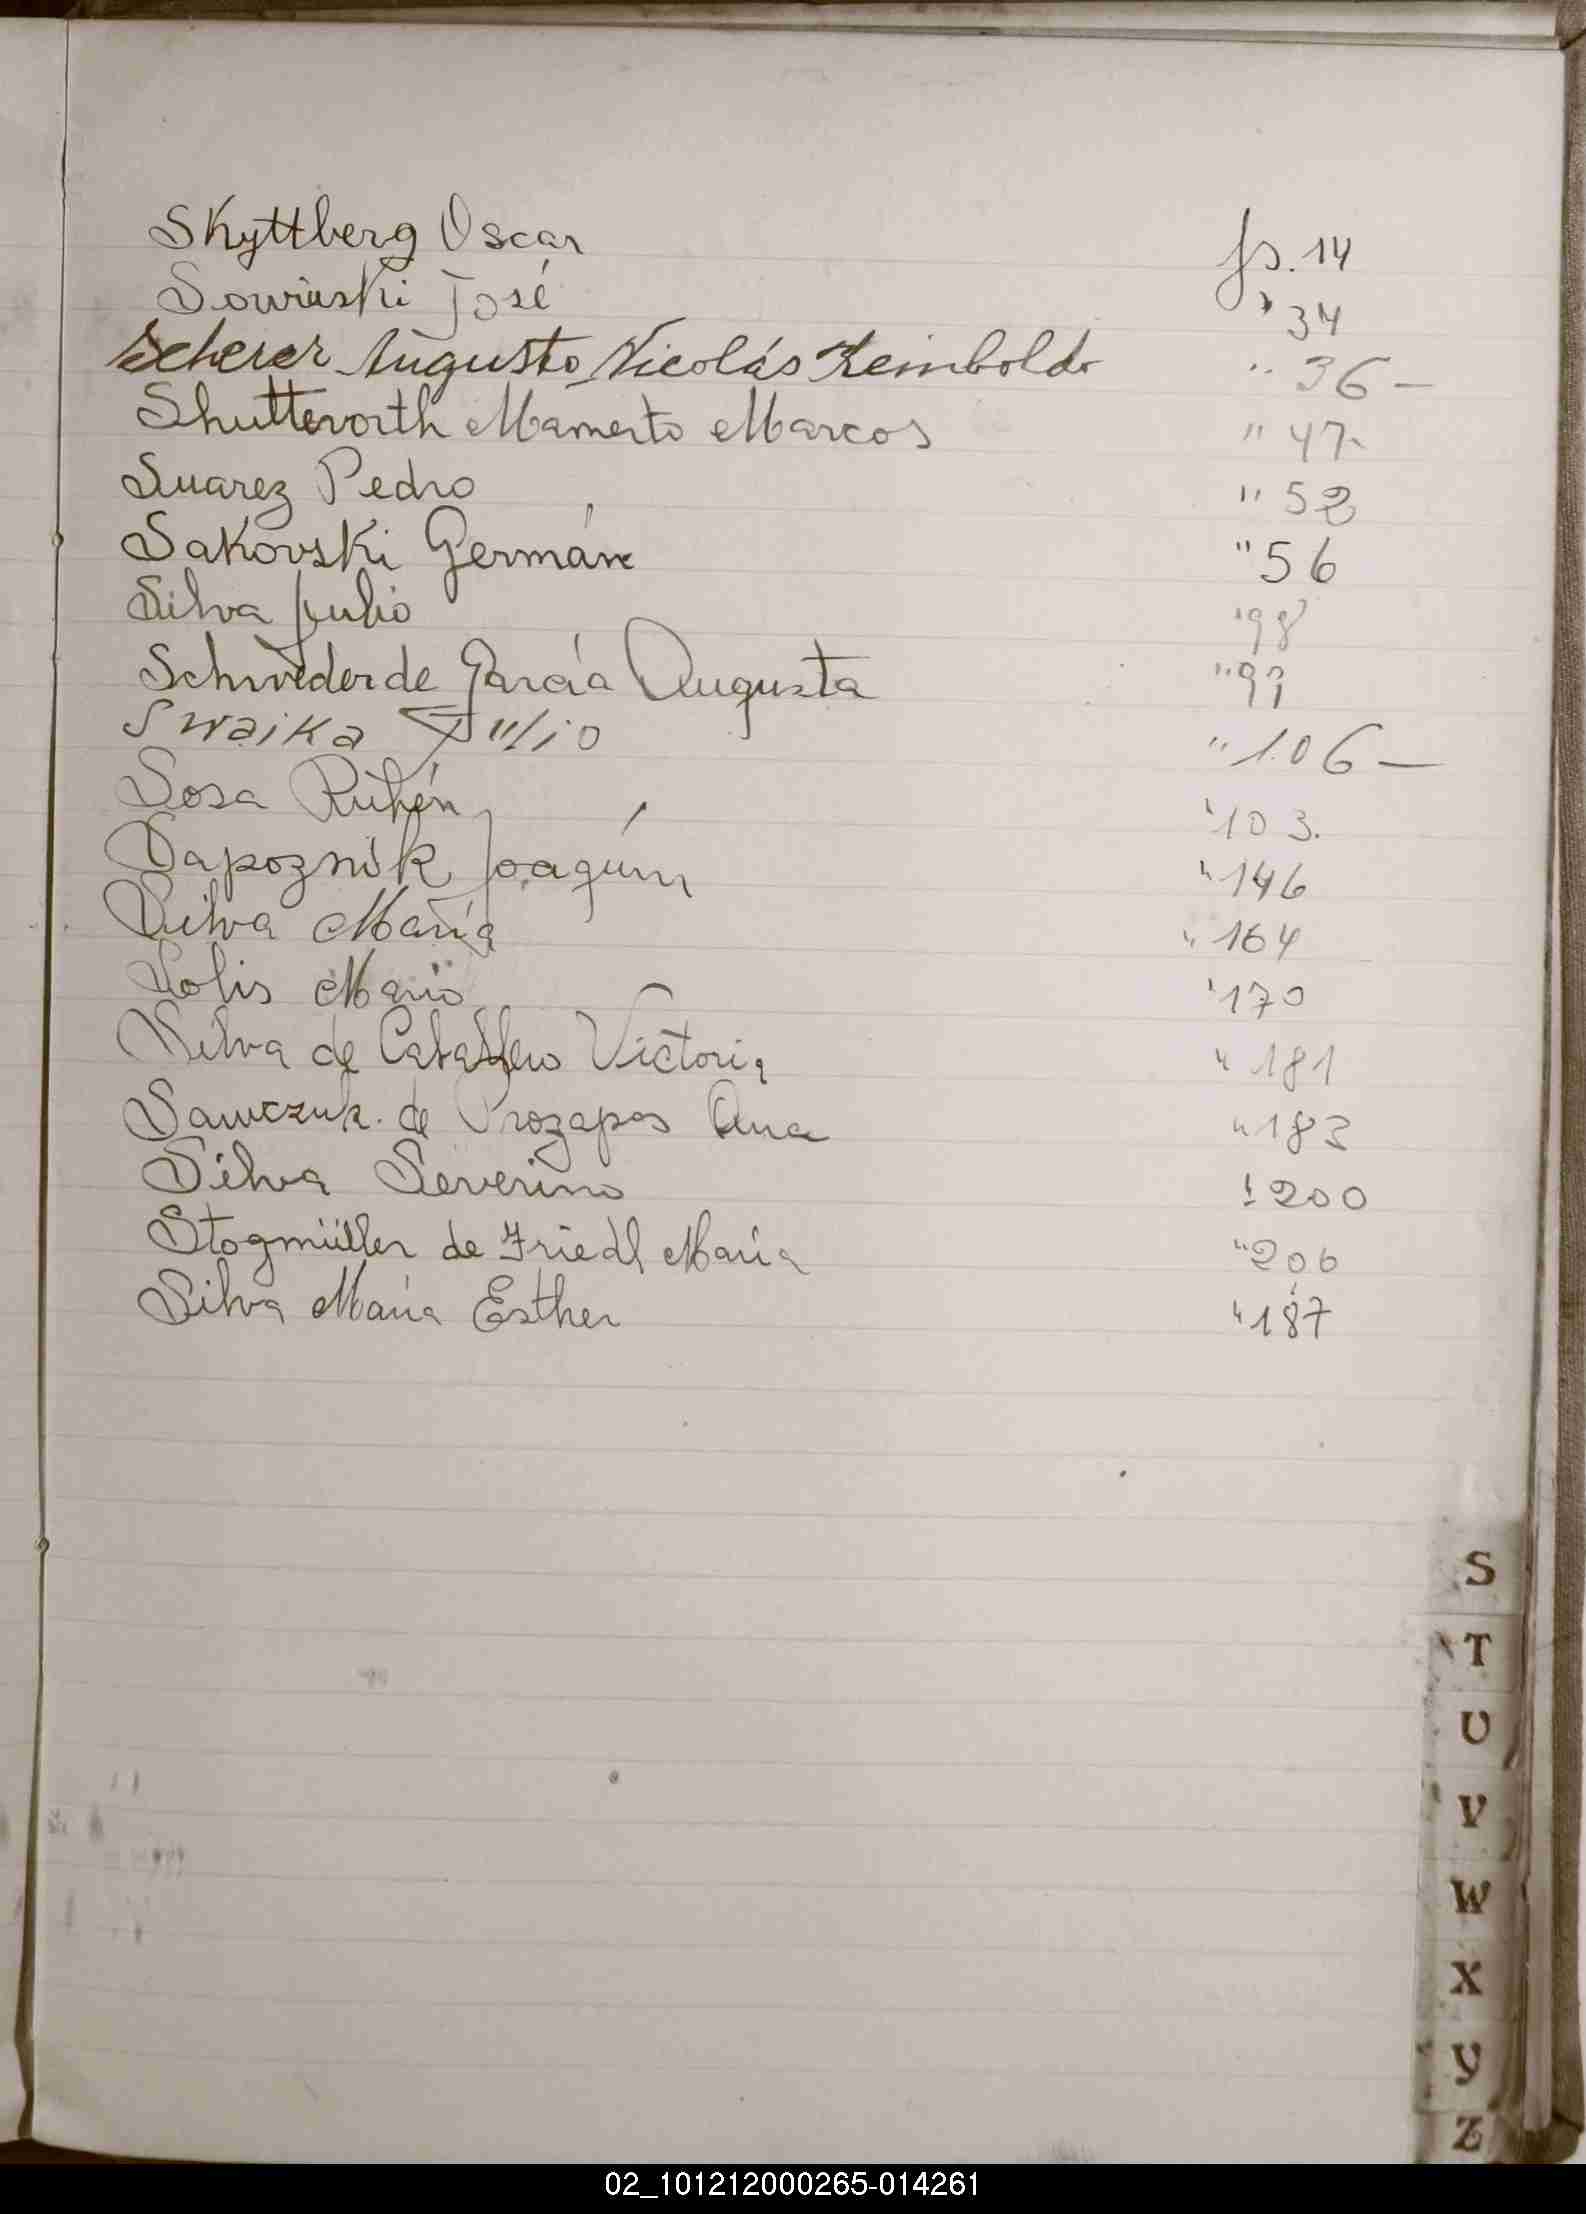 Skyttberg Oscar fs. 14
Sowinski José " 34
Scherer Augusto Nicolás Reimboldo " 36 —
Shutteworth Mamerto Marcos " 47-
Suarez Pedro " 52
Sakovski Germán " 56
Silva Julio " 98
Schweder de García Augusta " 97
Swaika Julio " 106 —
Sosa Rubén " 103.
Sapoznik Joaquín " 146
Silva María " 164
Solis Mario " 170
Silva de Caballero Victoria " 181
Sawczuk de Prozapas Ana " 183
Silva Severino " 200
Stogmüller de Friedl María " 206
Silva María Esther " 187
S
T
U
V
W
X
Y
Z
02_101212000265-014261